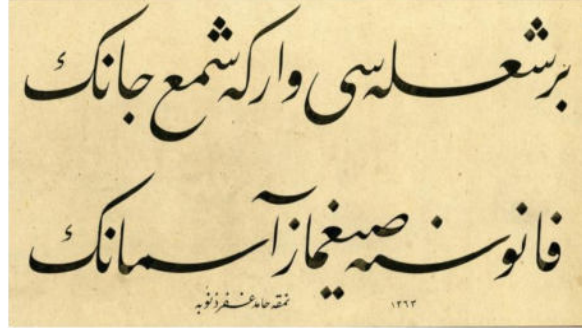 بر شعله سی وار كه شمع جانك
فانوسنه صیغماز آسمانك
نمقه حامد غفر ذنوبه
١٣٦٣